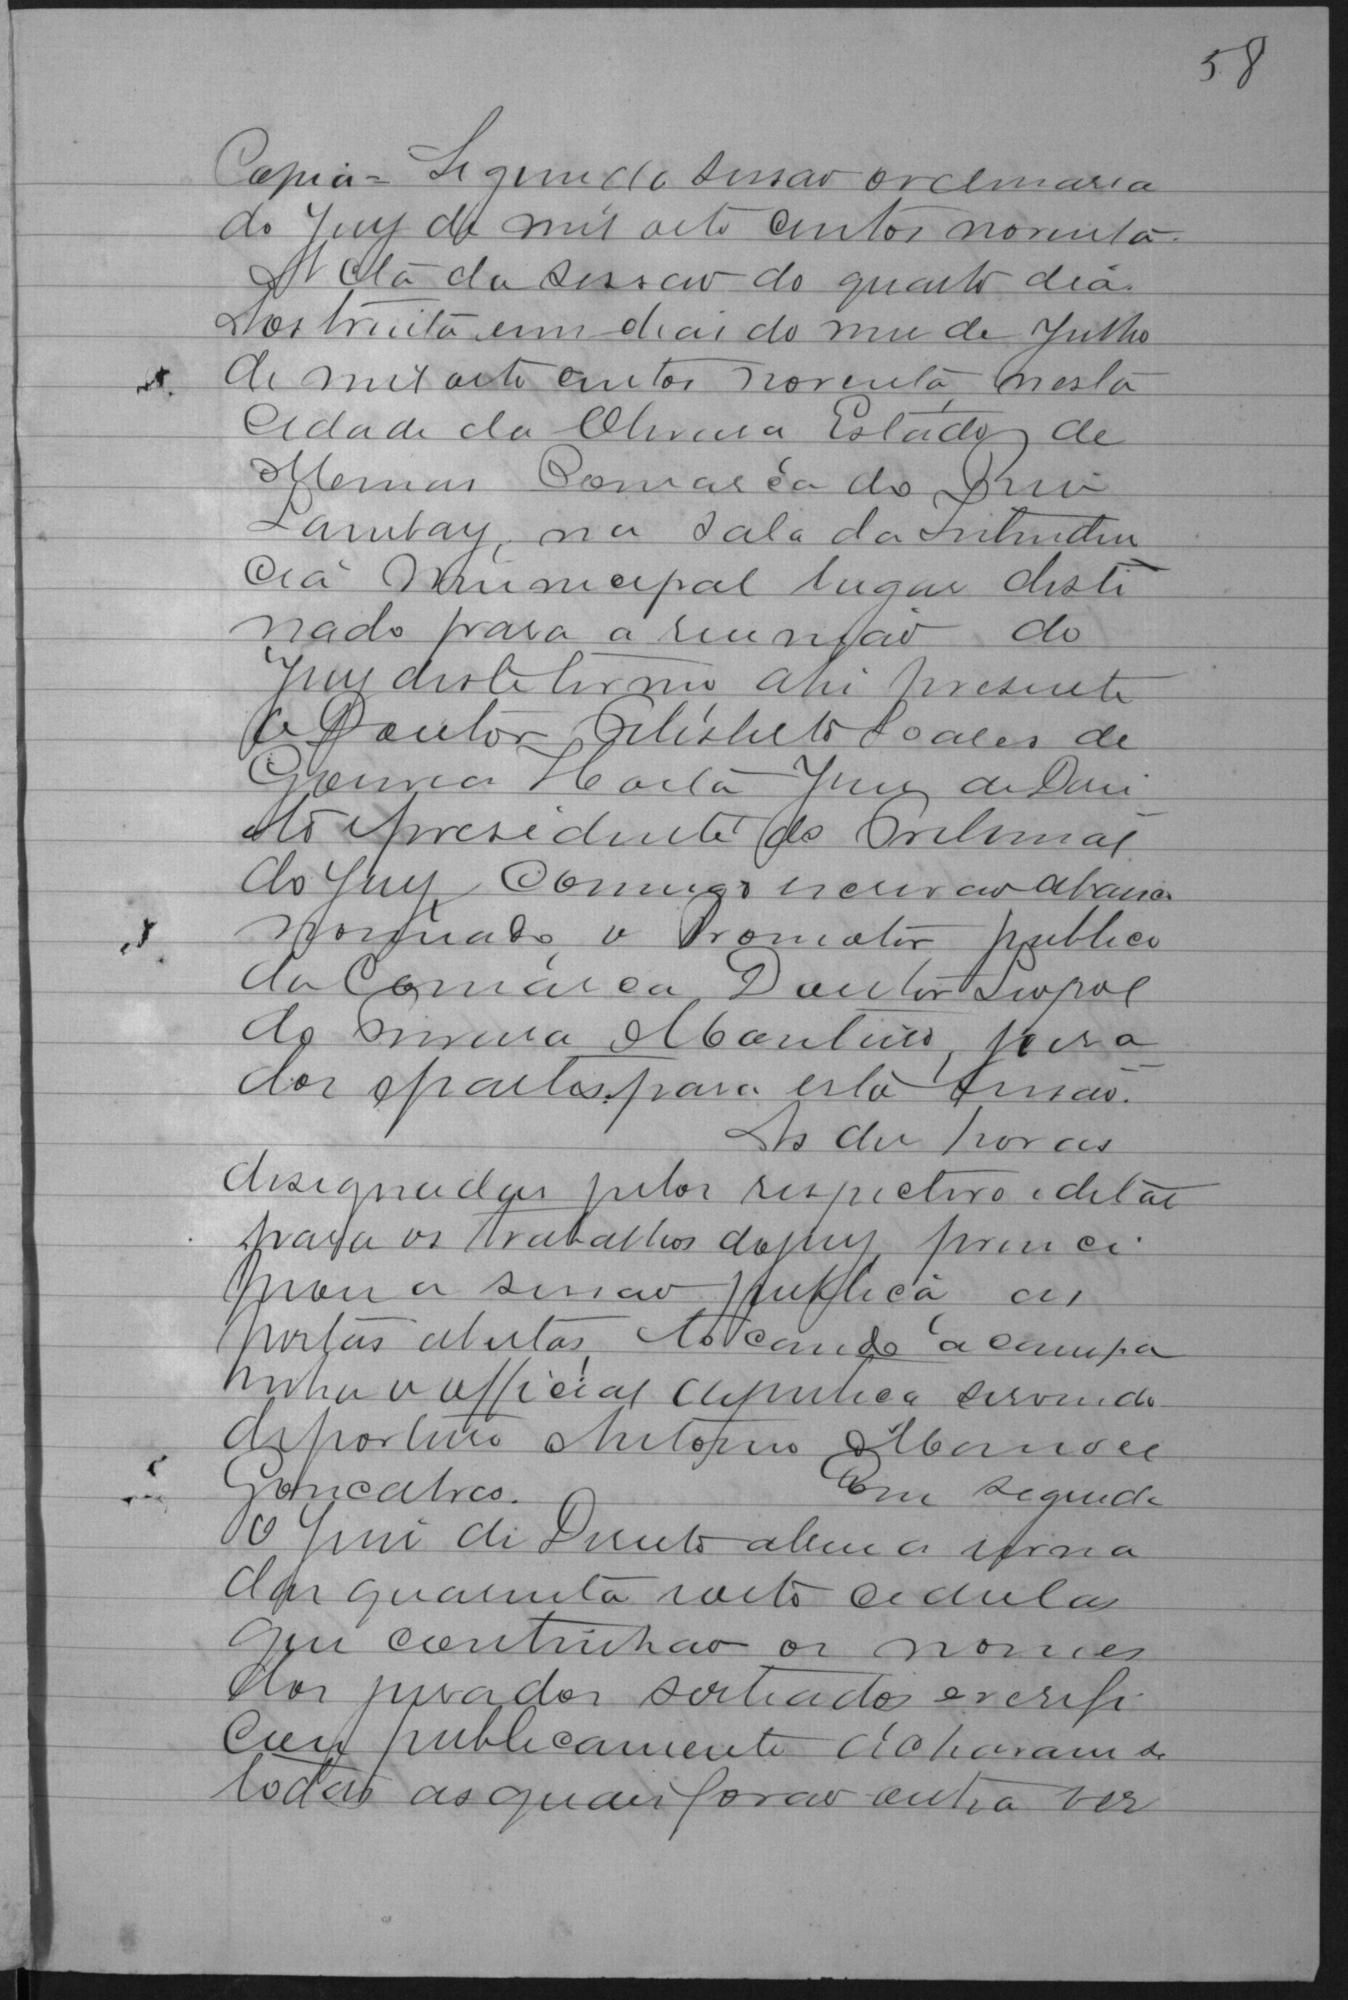 58
Copia = Segunda sessao ordinaria
do Jury de mil oito centos noventa.
Acta da sessao do quarto dia.
Aos trinta e um dias do mez de Julho
de mil oito centos noventa, nesta
Cidade da Oliveira Estado de
Minas Comarca do Rio
Lambary, na sala da Intenden
cia Municipal lugar desti
nado para a reuniao do
Jury deste termo ahi presente
o Doutor Soares de
Gouvea Horta Juiz de Direi
to e presidente do Tribunal
do Jury, Comigo escrivao abaixo
nomeado, o Promotor publico
da Comarca Doutor Leopol
do Monteiro, jura
dos e partes para esta sessao.
As dez horas
designadas pelos respectivo edital
para os trabalhos do jury, princi
piou a sessao publica as
portas abertas, tocando a campa
inha o official servindo
de porteiro Antonio Manoel
Goncalves. Em seguida
o Juiz de Direito abrio a urna
das quarenta e oito cedulas
que continhao os nomes
dos jurados sorteados e verifi
cou publicamente acharam se
todas as quaes forao outra vez